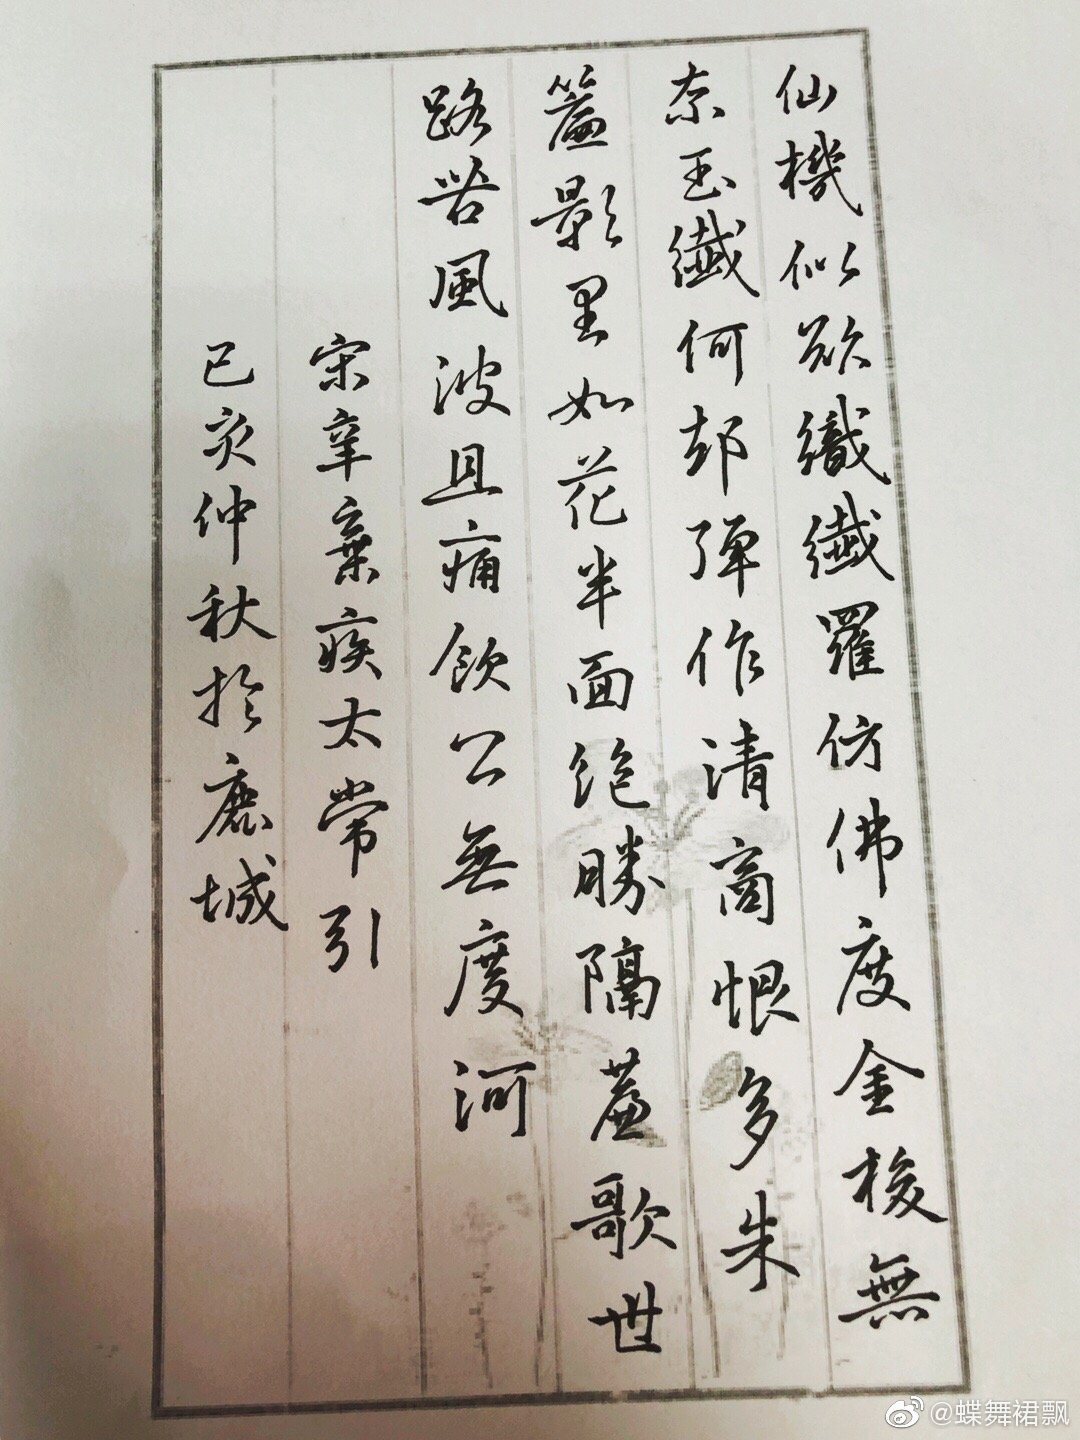 仙機似欲織纖羅仿佛度金梭無
奈玉纖何却彈作清商恨多朱
簾影里如花半面絶勝隔簾歌世
路苦風波且痛飲公無度河
宋辛棄疾太常引
已亥仲秋於鹿城
@蝶舞裙飘